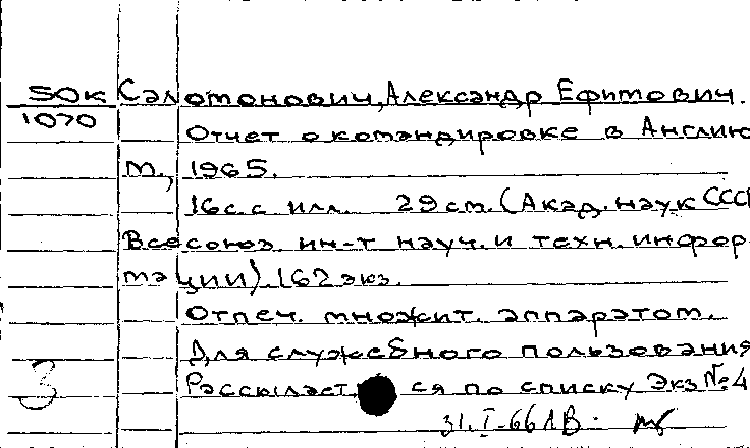 SOK Саломонович, Александр Ефимович.
1070 Отчет о командировке в Англию
М., 1965.
16 с. с илл. 29 см. (Акад. наук ССС
Всесоюз. ин-т науч. и техн. инфор
мации). 162 экз.
Отпеч. множит. аппаратом.
Для служебного пользования
Рассылается по списку Экз № 4
3
31.I-66